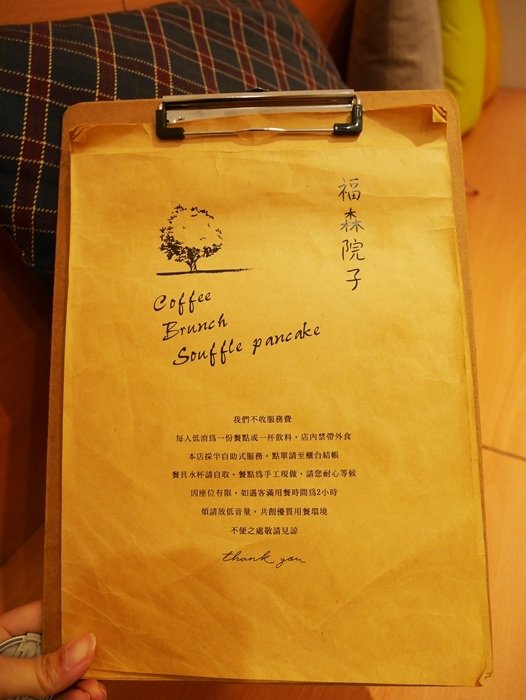 福森院子
Coffee
Brunch
Souffle pancake
我們不收服務費
每人低消為一份餐點或一杯飲料，店內禁帶外食
本店採半自助式服務，點單請至櫃台結帳
餐具水杯請自取，餐點為手工現做，請您耐心等候
因座位有限，如遇客滿用餐時間為2小時
煩請放低音量，共創優質用餐環境
不便之處敬請見諒
thank you